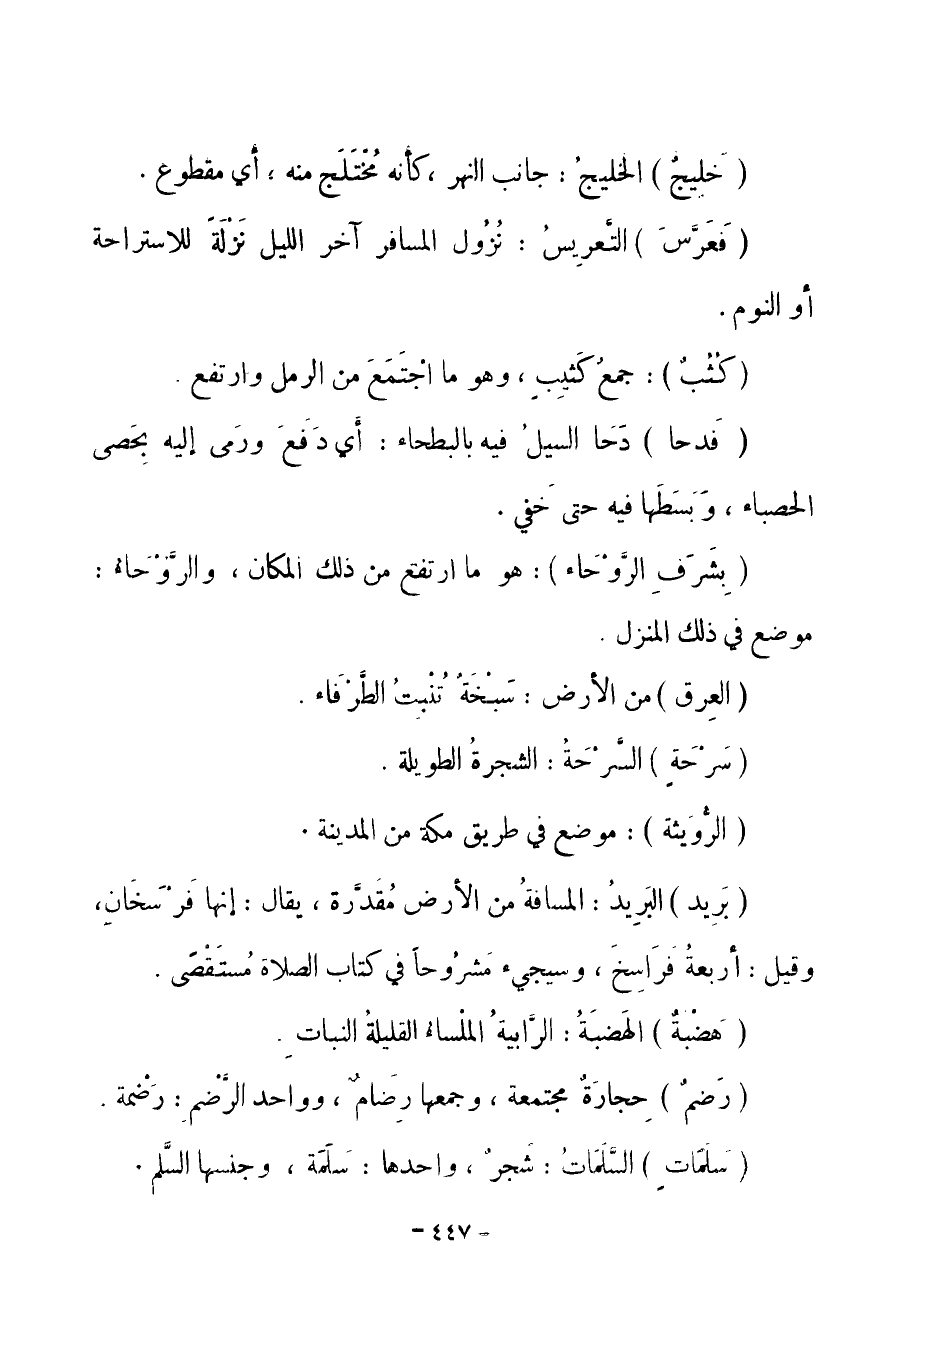 ( خَلِيجٌ ) الخليجُ : جانب النهر ، كأنه مُخْتَلَج منه ، أي مقطوع .
( فَعَرَّسَ ) التَّعريسُ : نُزُول المسافر آخر الليل نَزْلَةً للاستراحة
أو النوم .
( كُثُبٌ ) : جمعُ كَثِيبٍ ، وهو ما اجْتَمَعَ من الرمل وارتفع .
( فَدحا ) دَحَا السيلُ فيه بالبطحاء : أَي دَفَعَ ورَمى إليه بِحَصى
الحصباء ، وَبَسَطَها فيه حتى خَفي .
( بِشَرَفِ الرَّوْحَاء ) : هو ما ارتفع من ذلك المكان ، والرَّوْحَاءُ :
موضع في ذلك المنزل .
( العِرق ) من الأرض : سَبْخَةٌ تُنْبِتُ الطَّرْفَاء .
( سَرْحَةٍ ) السَّرْحَةُ : الشجرةُ الطويلة .
( الرُّوَيثة ) : موضع في طريق مكة من المدينة .
( بَرِيد ) البَرِيدُ : المسافةُ من الأرض مُقَدَّرة ، يقال : إنها فَرْسَخَانِ ،
وقيل : أربعةُ فَرَاسِخَ ، وسيجيء مَشرُوحاً في كتاب الصلاة مُستَقْصًى .
( هَضْبَةٌ ) الهَضبَةُ : الرَّابيةُ الملْساءُ القليلةُ النباتِ .
( رَضمٌ ) حِجارَةٌ مجتمعة ، وجمعها رِضَامٌ ، وواحد الرَّضْمِ : رَضْمة .
( سَلَمَاتٍ ) السَّلَمَاتُ : شَجرٌ ، واحدها : سَلَمَة ، وجنسها السَّلم .
- ٤٤٧ -